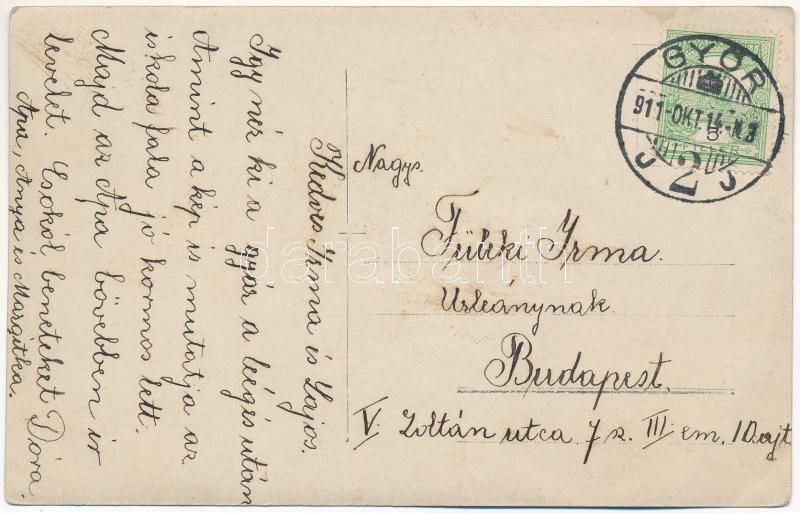 Kedves Irma és Lajos.
Igy néz ki a gyár a leégés után
Amint a kép is mutatja az
iskola fala jó kormos lett.
Majd az Apa bővebben ir
levelet. Csókol beneteket Dóra.
Apa, Anya és Margitka.
GYŐR
911-OKT.14-N.3
J 2 J
Nagys.
Irma.
Urleánynak.
Budapest.
V. Zoltán utca 7 sz. III em. 10 ajt
darabanth